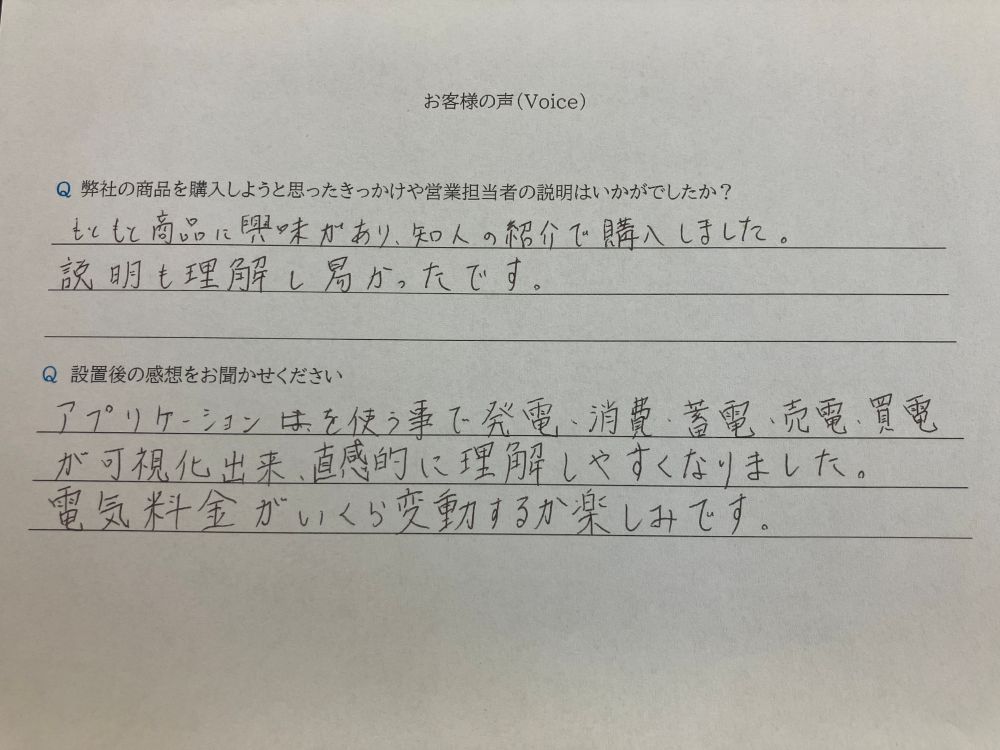 お客様の声(Voice)
Q 弊社の商品を購入しようと思ったきっかけや営業担当者の説明はいかがでしたか？
もともと商品に興味があり、知人の紹介で購入しました。
説明も理解し易かったです。
Q 設置後の感想をお聞かせください
アプリケーションはを使う事で発電・消費・蓄電・売電・買電
が可視化出来、直感的に理解しやすくなりました。
電気料金がいくら変動するか楽しみです。